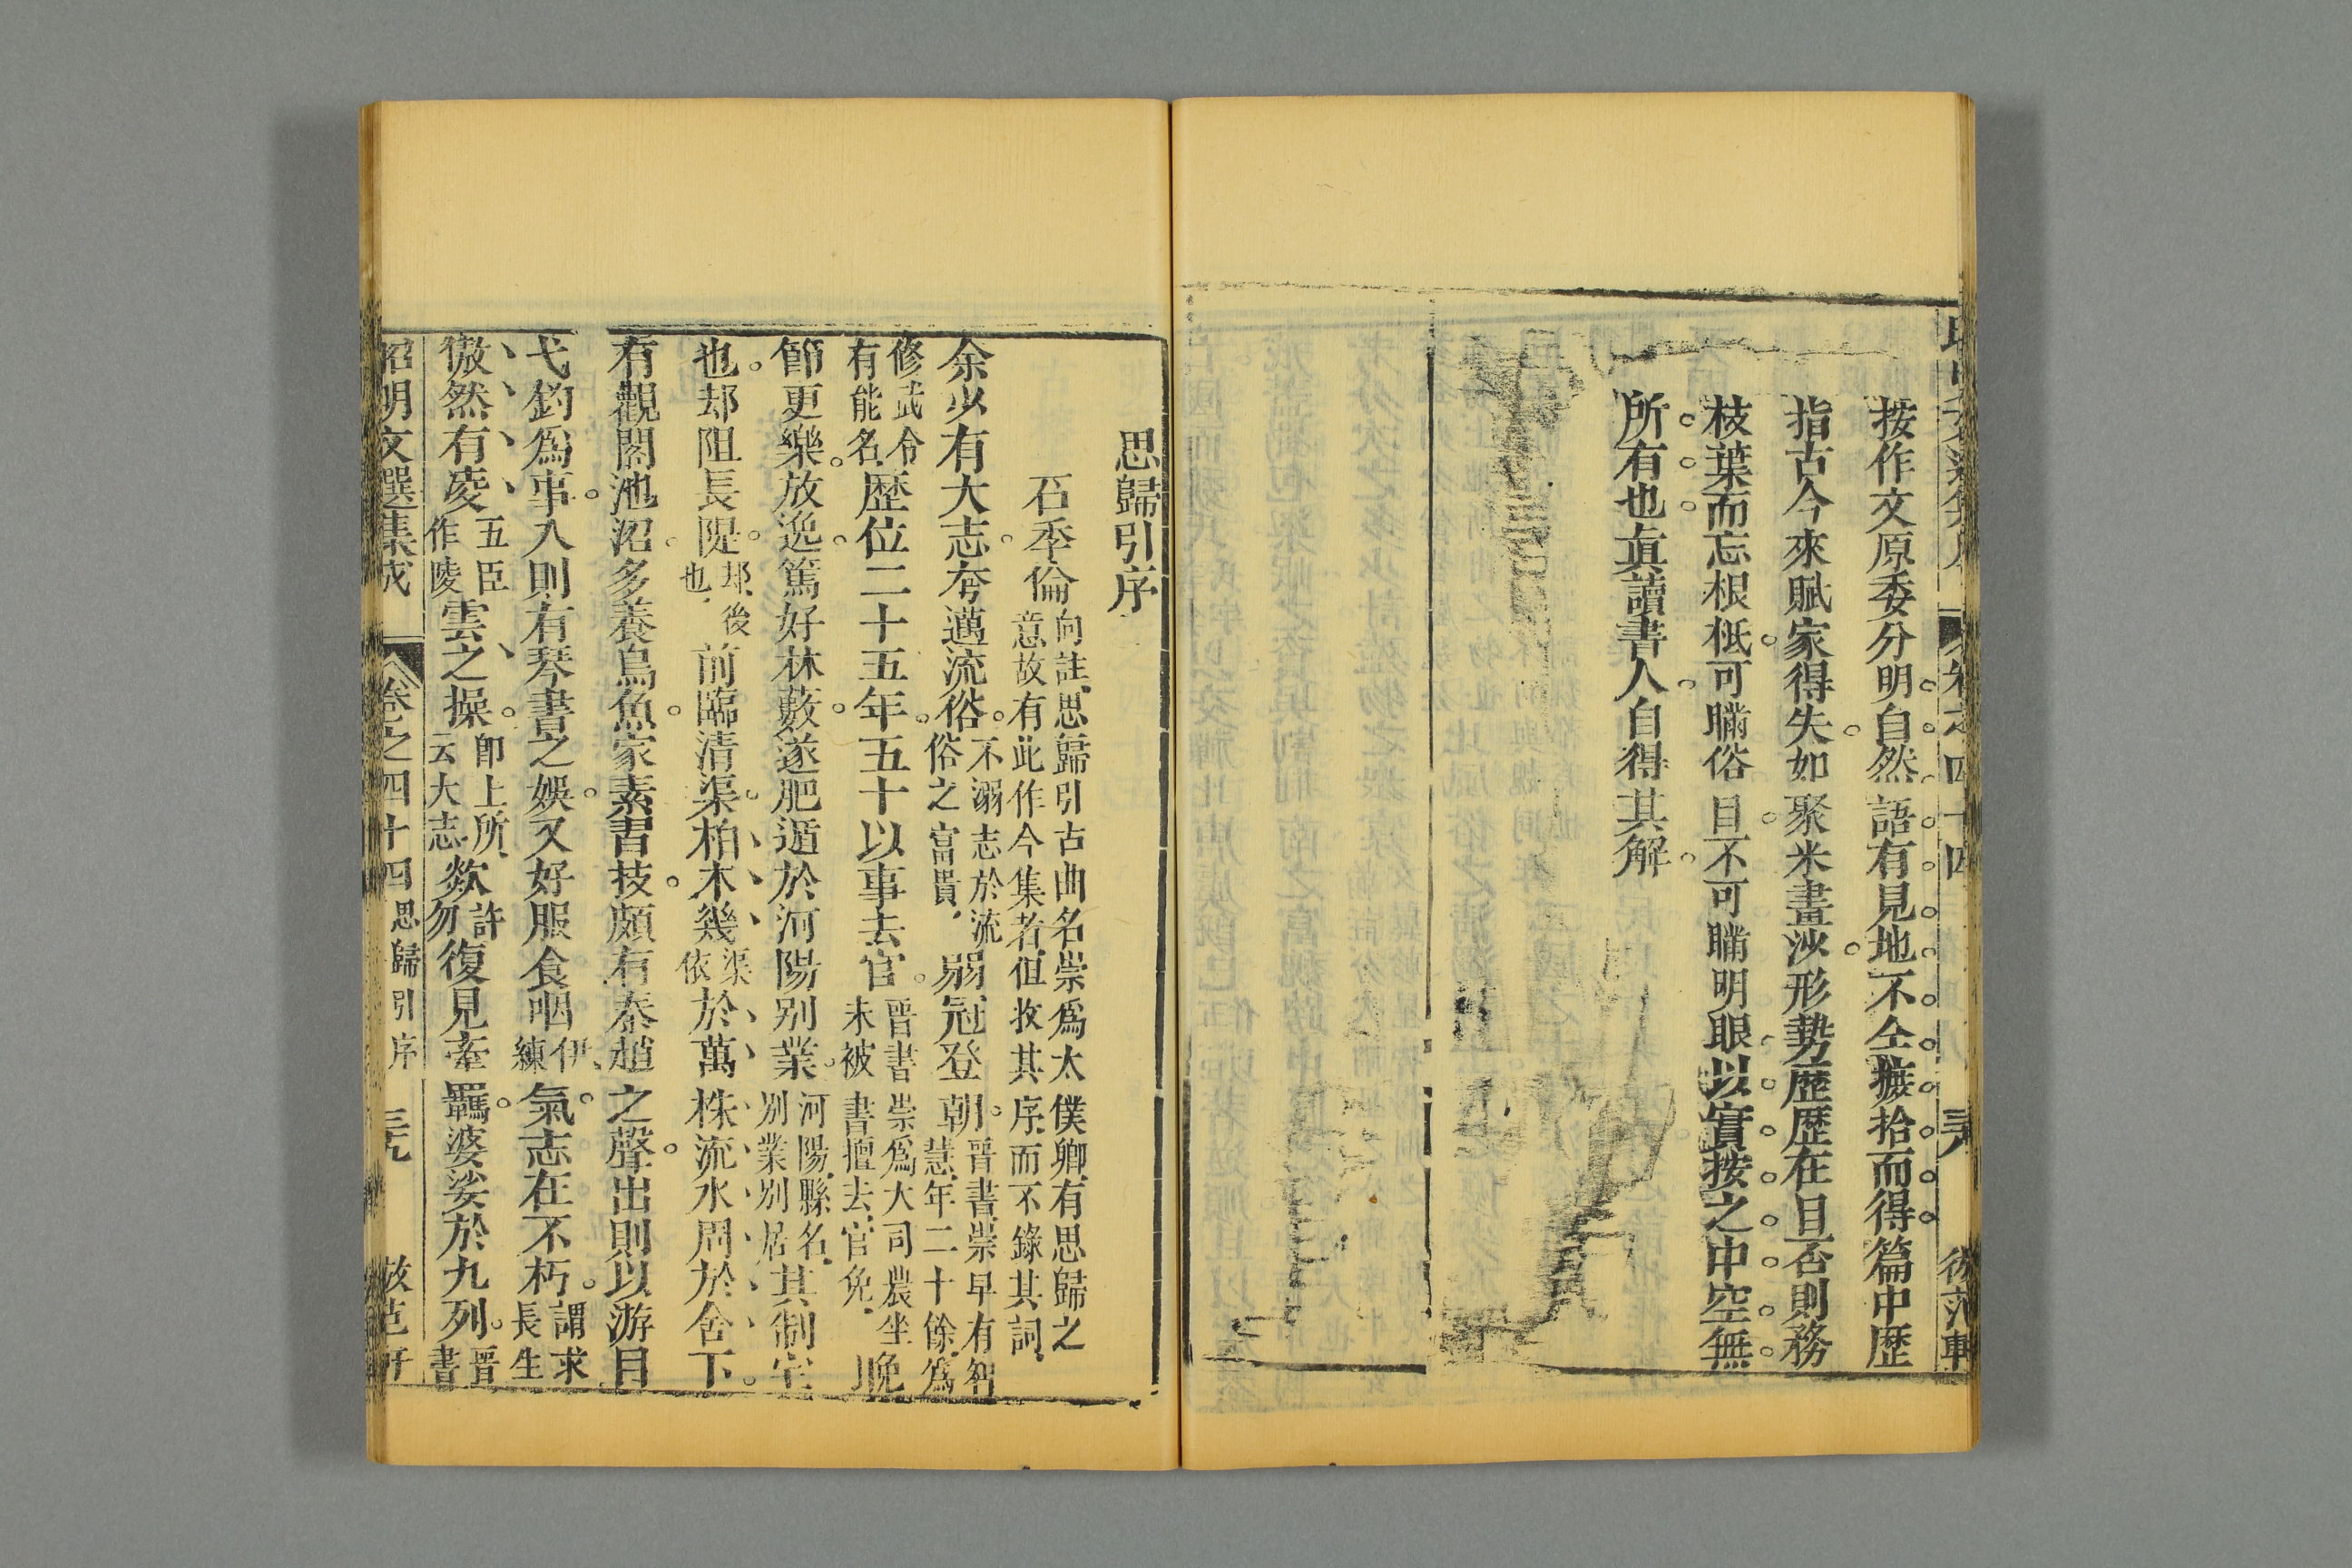 按作文原委分明自然語有見地不仝摭拾而得篇中歷
指古今來賦家得失如聚米畫沙形勢歷歷在目否則務
枝葉而忘根柢可瞞俗目不可瞞明眼以實按之中空無
所有也眞讀書人自得其解
思歸引序
石季倫
向註思歸引古曲名崇爲太僕卿有思歸之
意故有此作今集者但收其序而不錄其詞
余少有大志夸邁流俗
不溺志於流
俗之富貴
弱冠登朝
晋書崇早有智
慧年二十餘爲
修武令
有能名
歷位二十五年五十以事去官
晋書崇爲大司農坐
未被書擅去官免
晚
節更樂放逸篤好林藪遂肥遁於河陽别業
河陽縣名
别業别居
其制宅
也却阻長隄
却後
也
前臨清渠柏木幾
渠
依
於萬株流水周於舍下
有觀閣池沼多養鳥魚家素習技頗有秦趙之聲出則以游目
弋釣爲事入則有琴書之娛又好服食咽
伊
練
氣志在不朽
謂求
長生
傲然有凌
五臣
作陵
雲之操
卽上所
云大志
欻
許
勿
復見牽羈婆娑於九列
晋
書
昭明文選集成 卷之四十四 思歸引序 三九